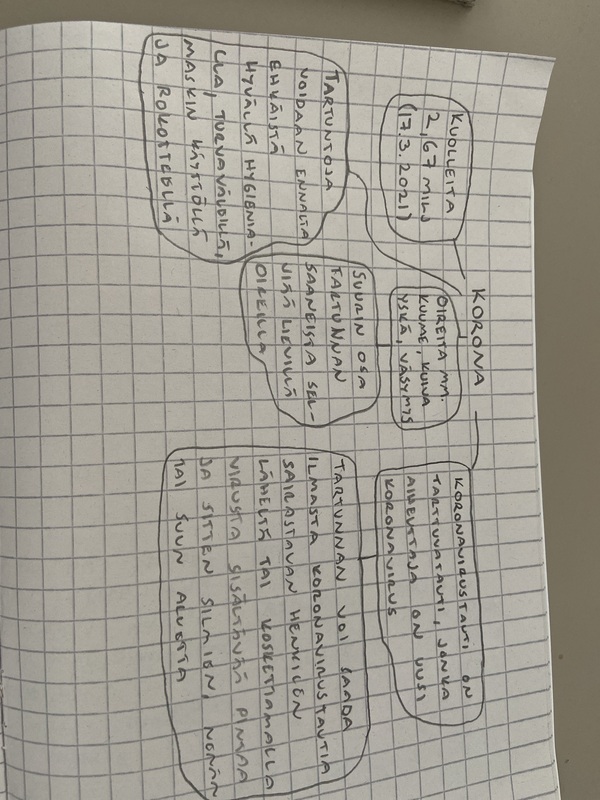 KORONA
KUOLLEITA
2,67 MILJ
(17.3.2021)
OIREITA MM.
KUUME, KUIVA
YSKÄ, VÄSYMYS
KORONAVIRUSTAUTI ON
TARTTUVATAUTI, JONKA
AIHEUTTAJA ON UUSI
KORONAVIRUS
TARTUNTOJA
VOIDAAN ENNALTA
EHKÄISTÄ
HYVÄLLÄ HYGIENIA-
LLA, TURVAVÄLILLÄ,
MASKIN KÄYTÖLLÄ
JA ROKOTTEELLA
SUURIN OSA
TARTUNNAN
SAANEISTA SEL-
VIÄÄ LIEVILLÄ
OIREILLA
TARTUNNAN VOI SAADA
ILMASTA KORONAVIRUSTAUTIA
SAIRASTAVAN HENKILÖN
LÄHELTÄ TAI KOSKETTAMALLA
VIRUSTA SISÄLTÄVÄÄ PINTAA
JA SITTEN SILMIEN, NENÄN
TAI SUUN ALUETTA